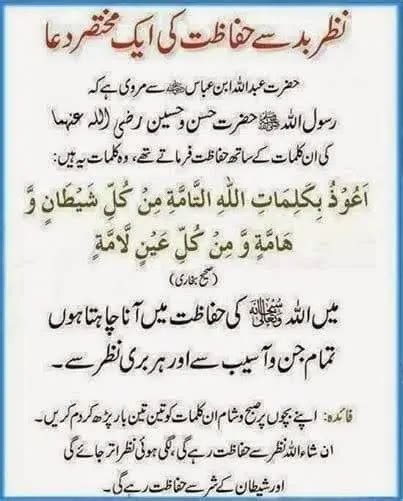 نظرِ بد سے حفاظت کی ایک مختصر دعا
حضرت عبداللہ ابن عباس ﷺ سے مروی ہے کہ
رسول اللہ ﷺ حضرت حسن و حسین رضی اللہ عنہما
کی ان کلمات کے ساتھ حفاظت فرماتے تھے، وہ کلمات یہ ہیں:
اَعُوْذُ بِكَلِمَاتِ اللّٰهِ التَّامَّةِ مِنْ كُلِّ شَيْطَانٍ وَّ
هَامَّةٍ وَّ مِنْ كُلِّ عَيْنٍ لَّامَّةٍ
(صحیح بخاری)
میں اللہ سبحانہ وتعالیٰ کی حفاظت میں آنا چاہتا ہوں
تمام جن و آسیب سے اور ہر بری نظر سے۔
فائدہ: اپنے بچوں پر صبح و شام ان کلمات کو تین تین بار پڑھ کر دم کریں۔
ان شاء اللہ نظر سے حفاظت رہے گی، لگی ہوئی نظر اتر جائے گی
اور شیطان کے شر سے حفاظت رہے گی۔